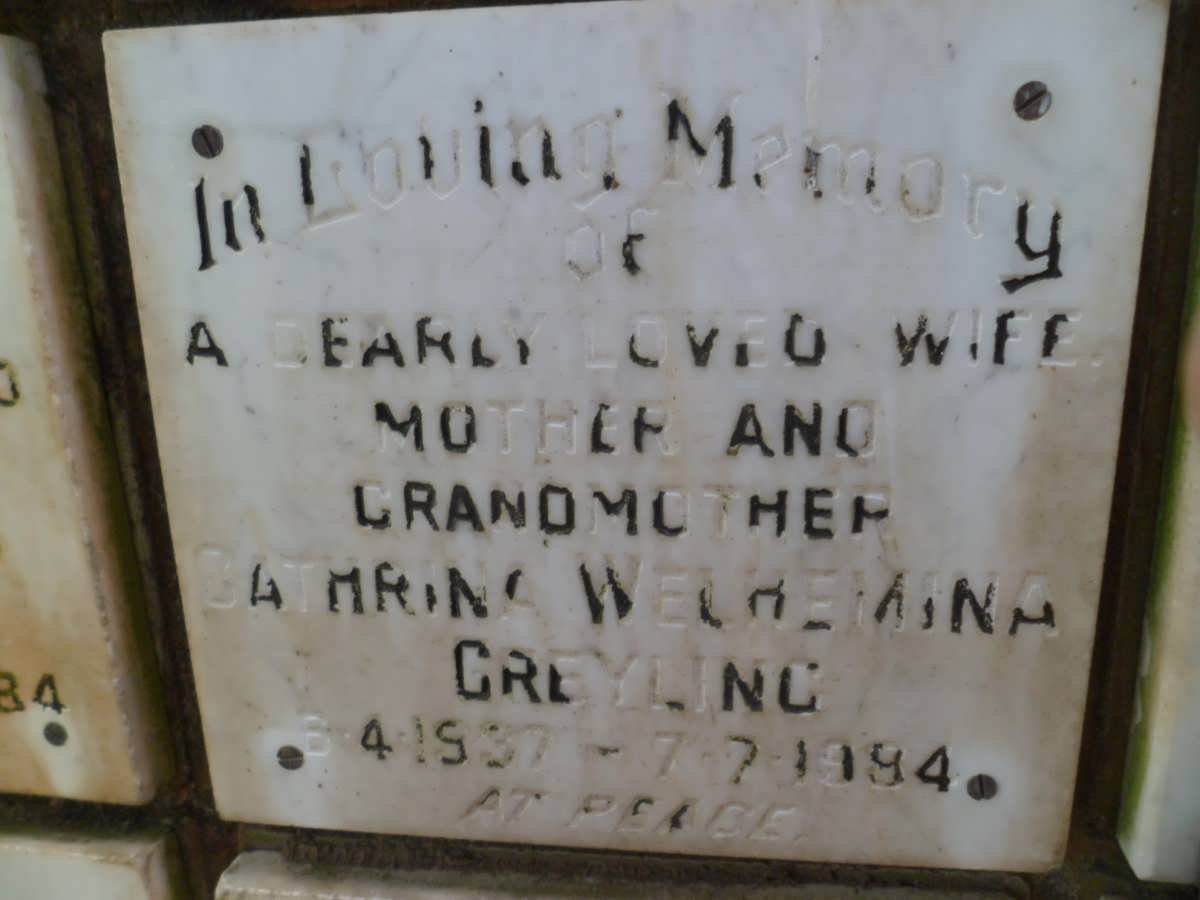 In Loving Memory
of
A DEARLY LOVED WIFE.
MOTHER AND
GRANDMOTHER
CATHRINA WELHEMINA
GREYLING
6·4·1937 - 7·7·1984
AT PEACE.
84